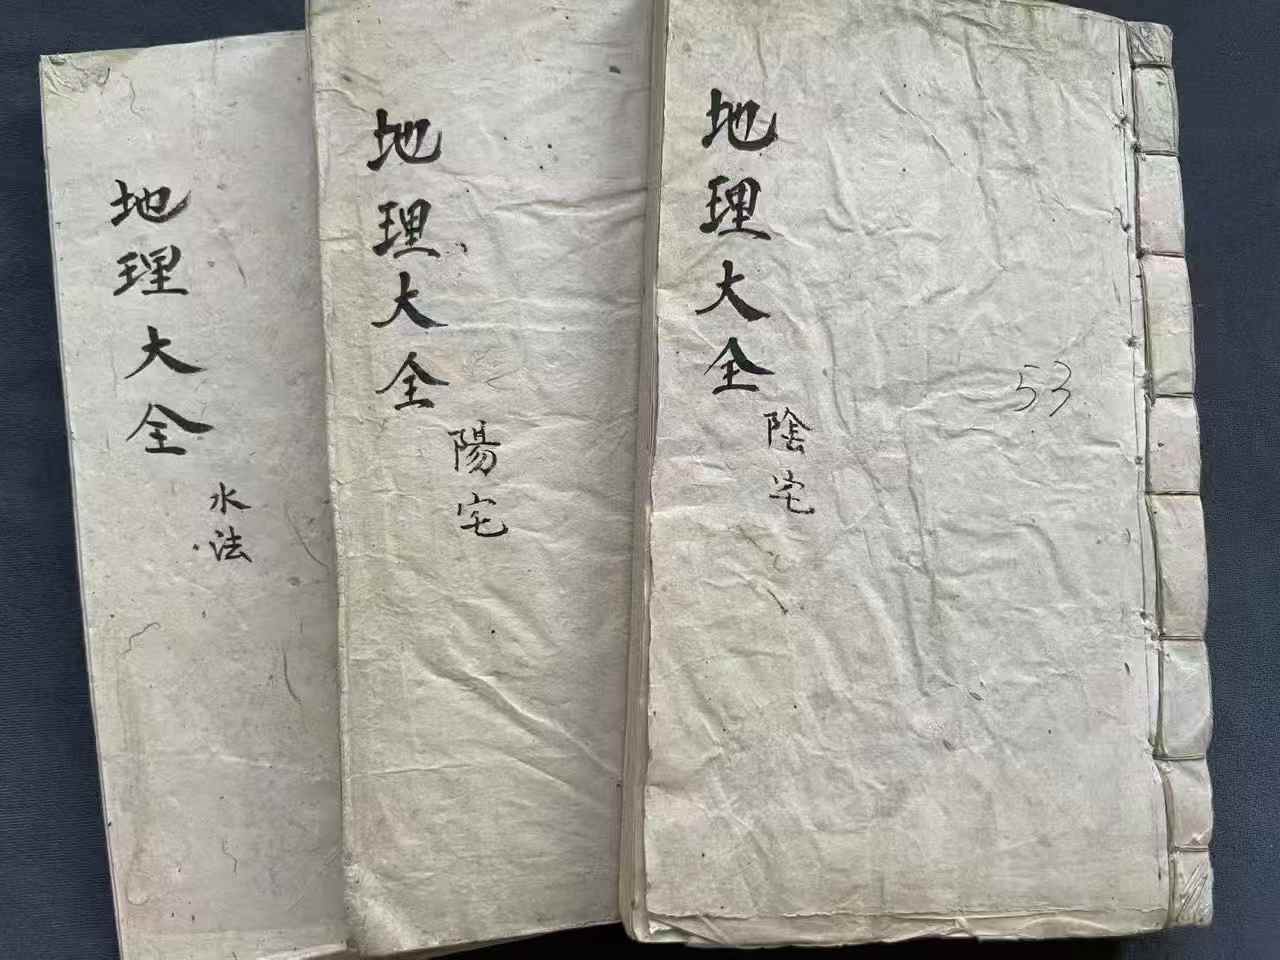 地理大全
陰宅
53
地理大全
陽宅
地理大全
水法